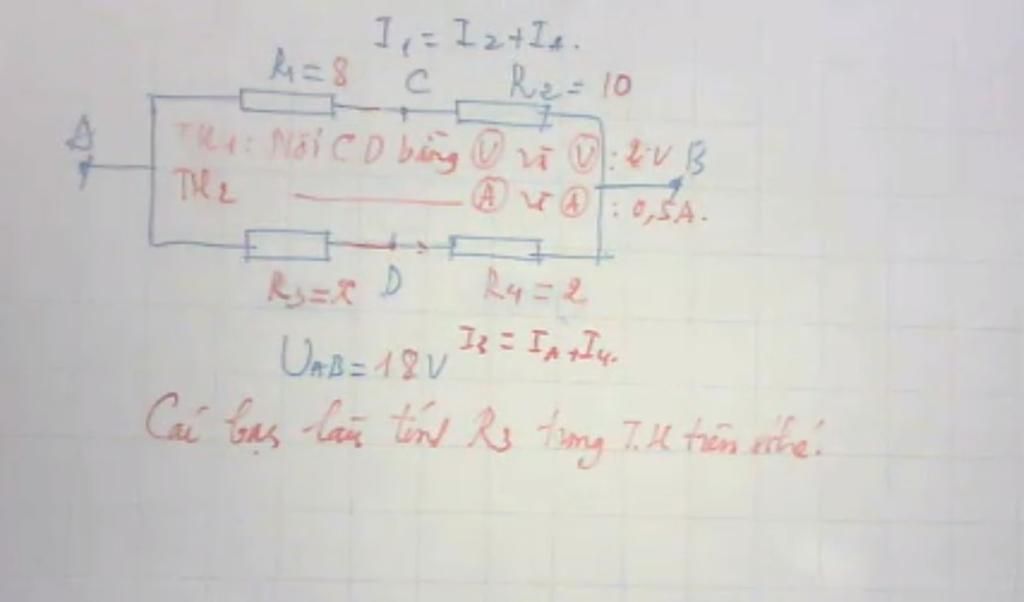 I₁ = I₂ + I_A.
R₁ = 8 C R₂ = 10
A
TH₁: Nối CD bằng Ⓥ vì Ⓥ: 2V B
TH₂ ——— Ⓐ vì Ⓐ: 0,5A.
R₃ = x D R₄ = 2
U_AB = 18V I₃ = I_A + I₄.
Các bạn tính R₃ trong T.H trên nhé!